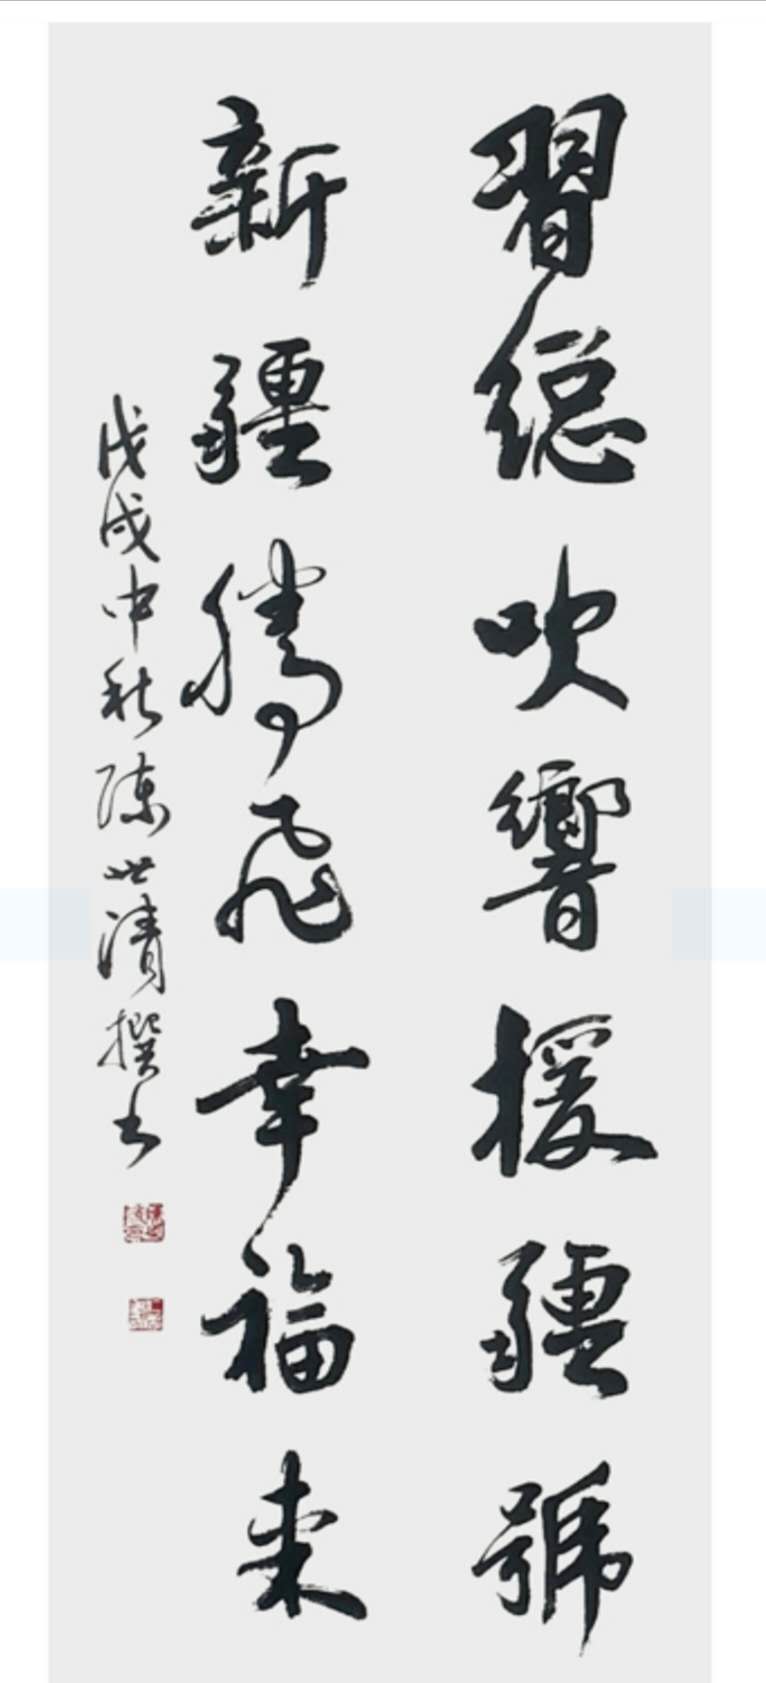 習總吹響援疆號
新疆騰飛幸福來
戊戌中秋陳世清撰書